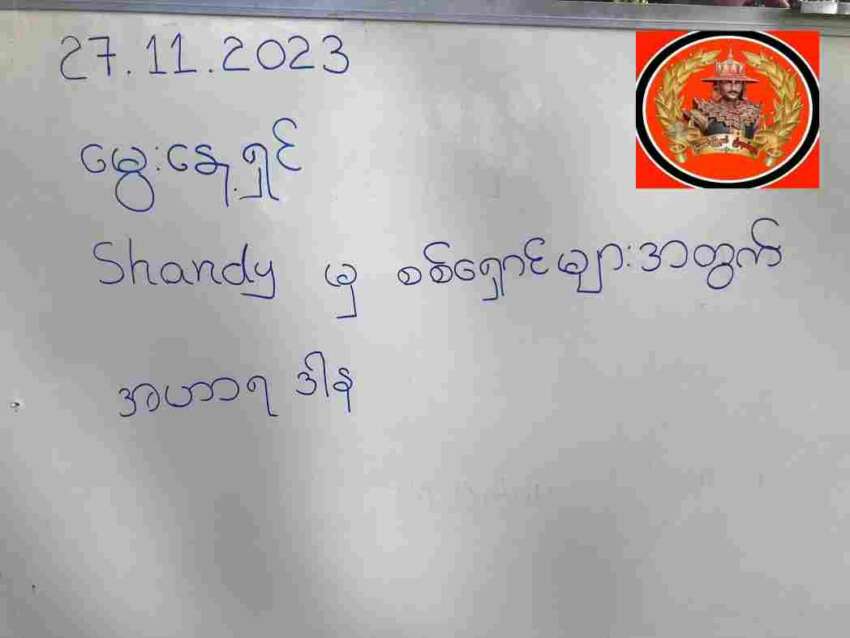 27.11.2023
မွေးနေ့ရှင်
Shandy မှ စစ်ရှောင်များအတွက်
အဟာရ ဒါန